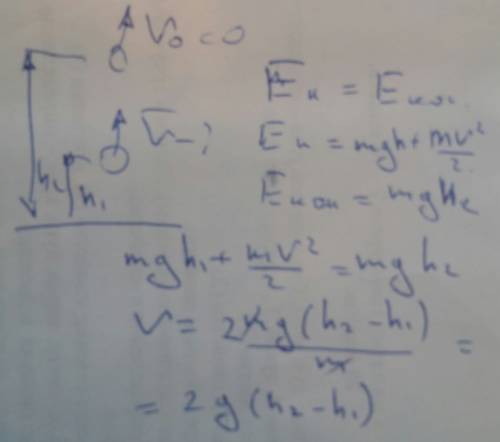 V₀ = 0
V - ?
h₂
h₁
Eн = Eкон.
Eн = mgh + mv²/2
Eкон = mgh₂
mgh₁ + mv²/2 = mgh₂
V = 2mg(h₂ - h₁)/m =
= 2g(h₂ - h₁)